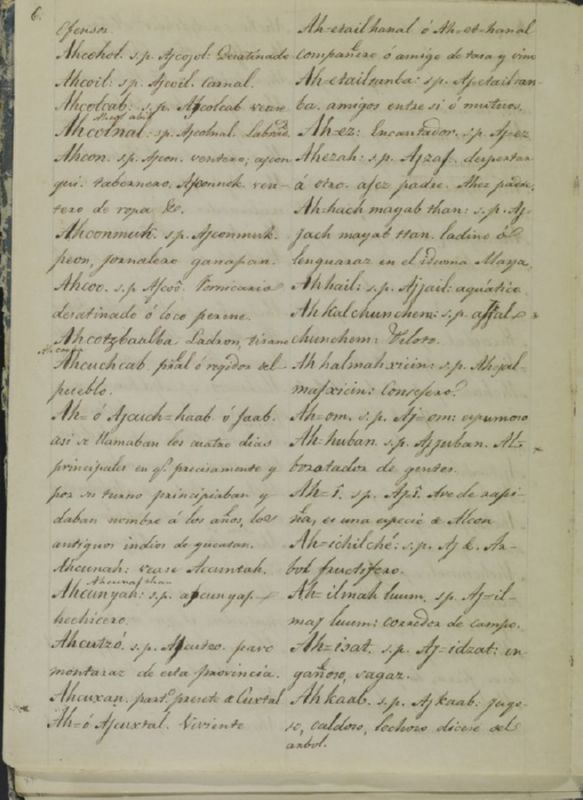 6.
ofensor
Ahcohol. s.p. Ajcojol: Desatinado
Ahcoil: s.p. Ajcoil. Carnal.
Ahcolcab: s.p. Ajcolcab vease
Ahcolnal: s.p. Ajcolnal. Labrad.
Ahcon. s.p. Ajcon. ventero; ajcon
qui. tabernero. Ajconnok. ven-
tero de ropa &c.
Ahconmuk: s.p. Ajconmuk.
peon, jornalero ganapan.
Ahcoo. s.p. Ajcoo. Fornicario
desatinado ó loco perene.
Ahcotzbaalba Ladron, tirano
Ahcuchcab pral ó regidor del
pueblo.
Ah= ó Ajcuch=haab. ó jaab.
asi se llamaban los cuatro dias
principales en q. precisamente y
por su turno principiaban y
daban nombre á los años, los
antiguos indios de yucatan.
Ahcunah: vease Acuntah.
Ahcunyah: s.p. ajcunyaj
hechicero.
Ahcutzó. s.p. Ajcutzo. pavo
montaraz de esta provincia.
Ahcuxan. part. presete de Cuxtal
Ah=ó Ajcuxtal. Viviente
Ah=etailhanal ó Ah=et=hanal
compañero ó amigo de tasa y vino
Ah=etailbanba: s.p. Aj=etailban-
ba. amigos entre si ó mutuos.
Ah=ez: Encantador. s.p. Aj=ez
Ahezah: s.p. Ajzaj. despertar
á otro. ajez padre. Ahez padre.
Ah=hach mayab than: s.p. Aj-
jach mayab ttan. ladino ó
lenguaraz en el idioma Maya.
Ahhail: s.p. Ajjail: aquático
Ahkalchunchem: s.p. ajjal
chunchem: Veloro.
Ahhalmahxicin: s.p. Ah=jal-
majxicin: Consejero.
Ah=om. s.p. Aj=om: espumoso
Ah=huban. s.p. Ajjuban. Al-
borotador de gentes.
Ah=í. s.p. Aj=í. Ave de rapi-
ña, es una especie de Alcon
Ah=ichilché: s.p. Aj &. Ar-
bol fructifero.
Ah=ilmah luum. s.p. Aj=il-
maj luum: corredor de campo.
Ah=isat. s.p. Aj=idzat: en-
gañoso, sagaz.
Ahkaab. s.p. Ajkaab: jugo-
so, caldoso, lechoso dicese del
arbol.